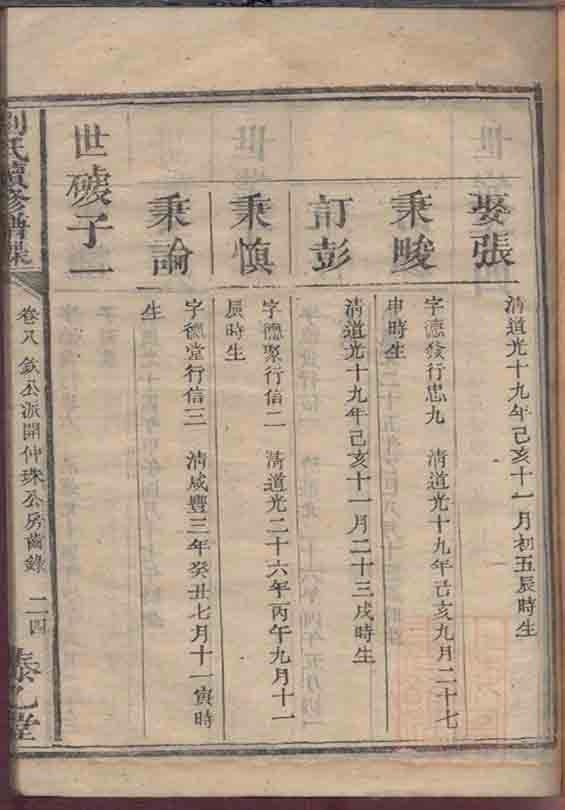 娶張
清道光十九年己亥十一月初五辰時生
秉畯
字德發行忠九 清道光十九年己亥九月二十七
申時生
訂彭
清道光十九年己亥十一月二十三戌時生
秉慎
字德聚行信二 清道光二十六年丙午九月十一
辰時生
秉論
字德堂行信三 清咸豐三年癸丑七月十一寅時
生
世子一
劉氏續修譜
卷八 欽公派開仲珠公房齒錄 二四
乙堂